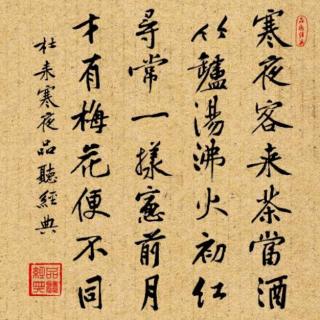 寒夜客来茶當酒
竹鑪湯沸火初红
尋常一樣窓前月
才有梅花便不同
杜耒寒夜品聽經典
品聽經典